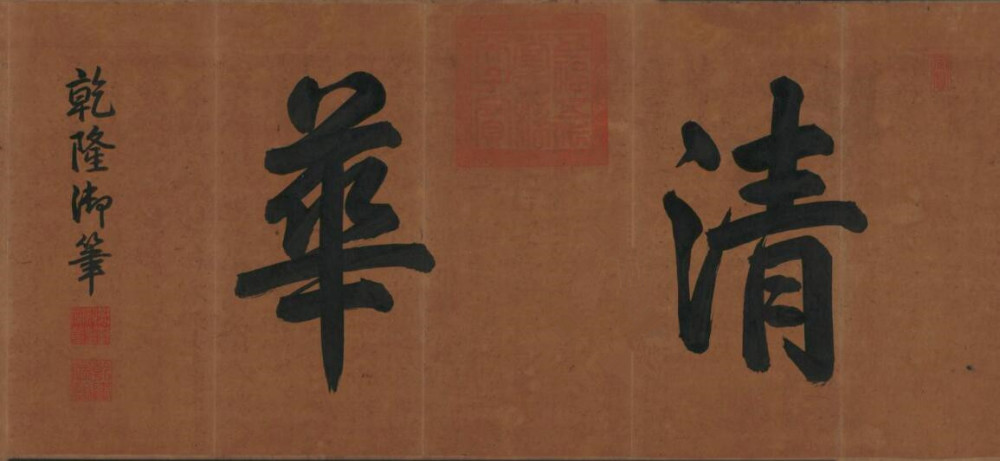 清華
乾隆御筆